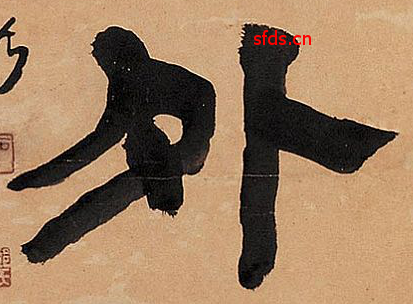 外
sfds.cn